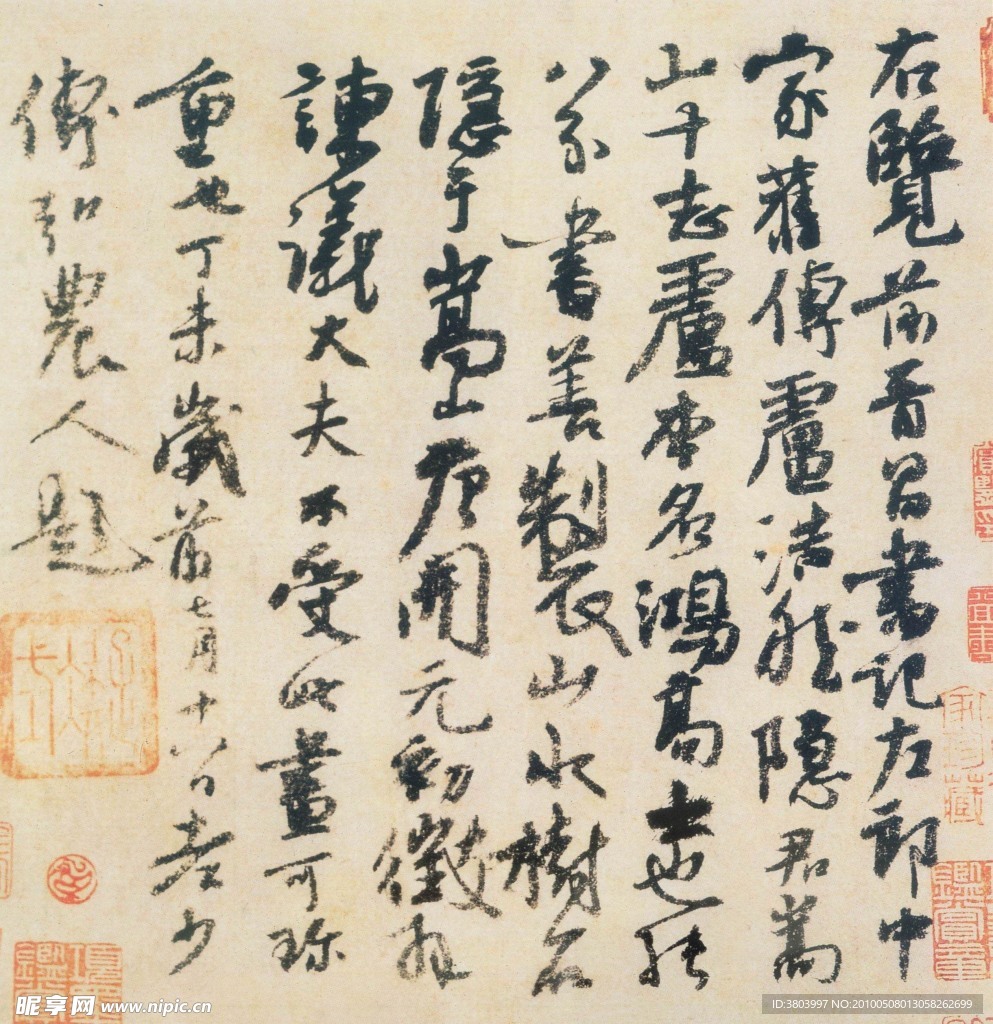 右覽前晉昌書記左郎中
家舊傳盧浩然隱君嵩
山十志盧本名鴻高士也能
八分書善製山水樹石
隱于嵩山唐開元初徵拜
諫議大夫不受此畫可珎
重也丁未歲前七月十八日老少
傅弘農人題
家珍藏
昵享网 www.nipic.cn
ID:3803997 NO:20100508013058262699